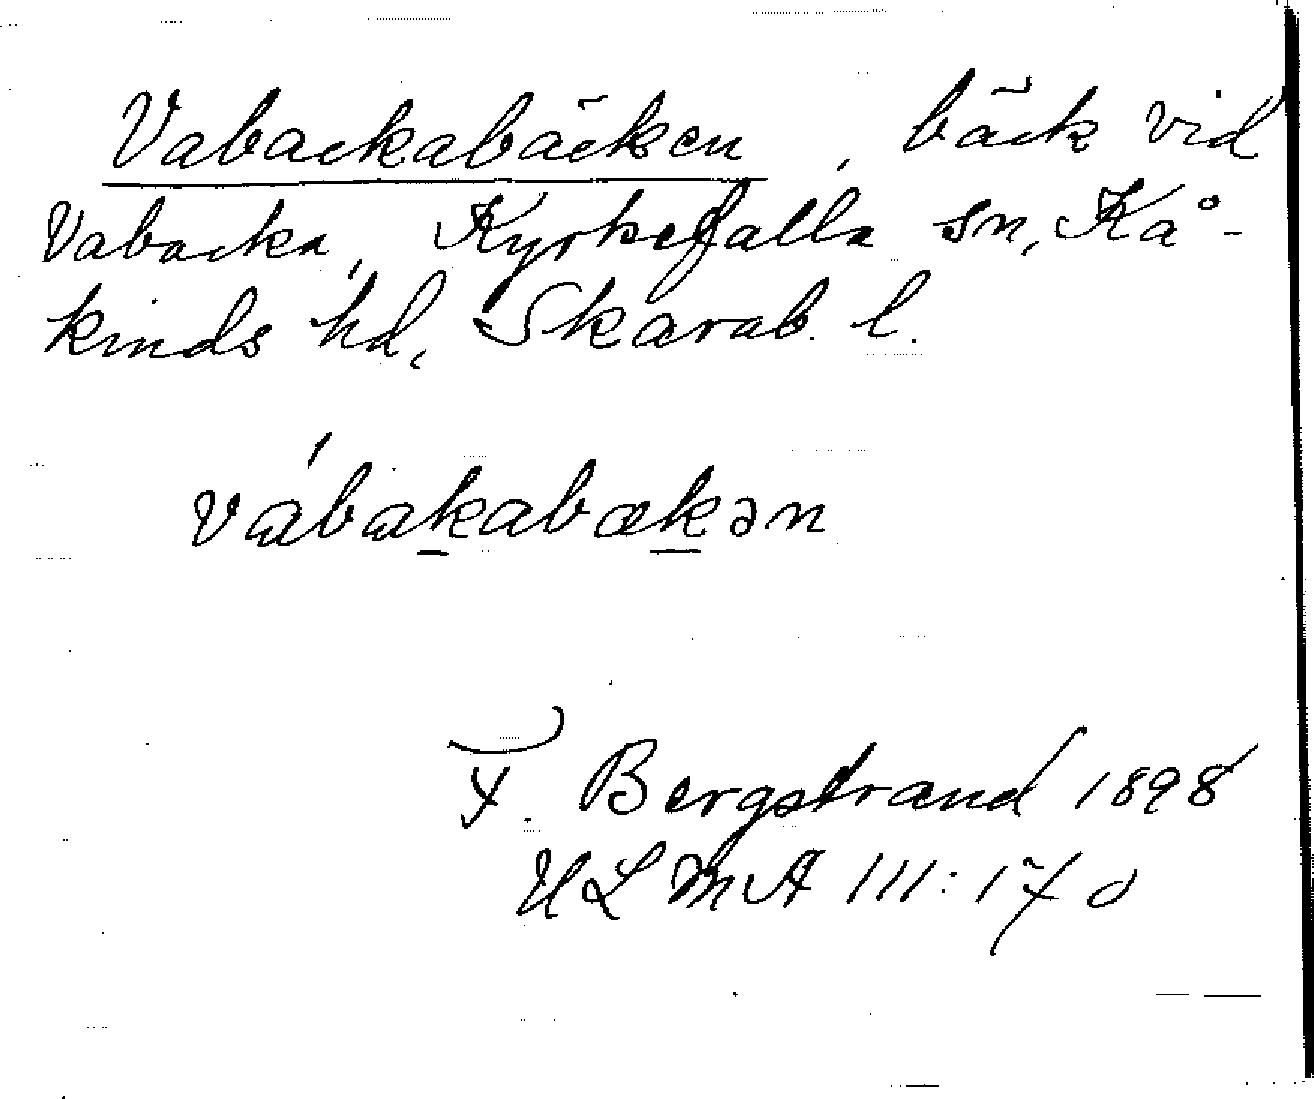 Vabackabäcken, bäck vid
Vabacka, Kyrkefalla sn, Kå-
kinds hd, Skarab. l.
vábakabækən
F. Bergstrand 1898
ULMA 111:170